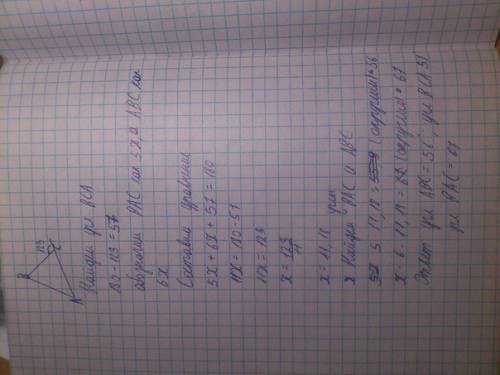 B
123
A
C
Найдем угл BCA
180-123=57
обозначим BAC как 5x, а ABC как
6x
Составим уравнение
5x+6x+57=180
11x=180-57
11x=123
x=123/11
x=11,18
2 Найдем угл BAC и ABC
5·11,18= (округлим)=56
x 6·11,18= (округлим)=67
Ответ угл ABC=56, угл BCA 57
угл BAC=67